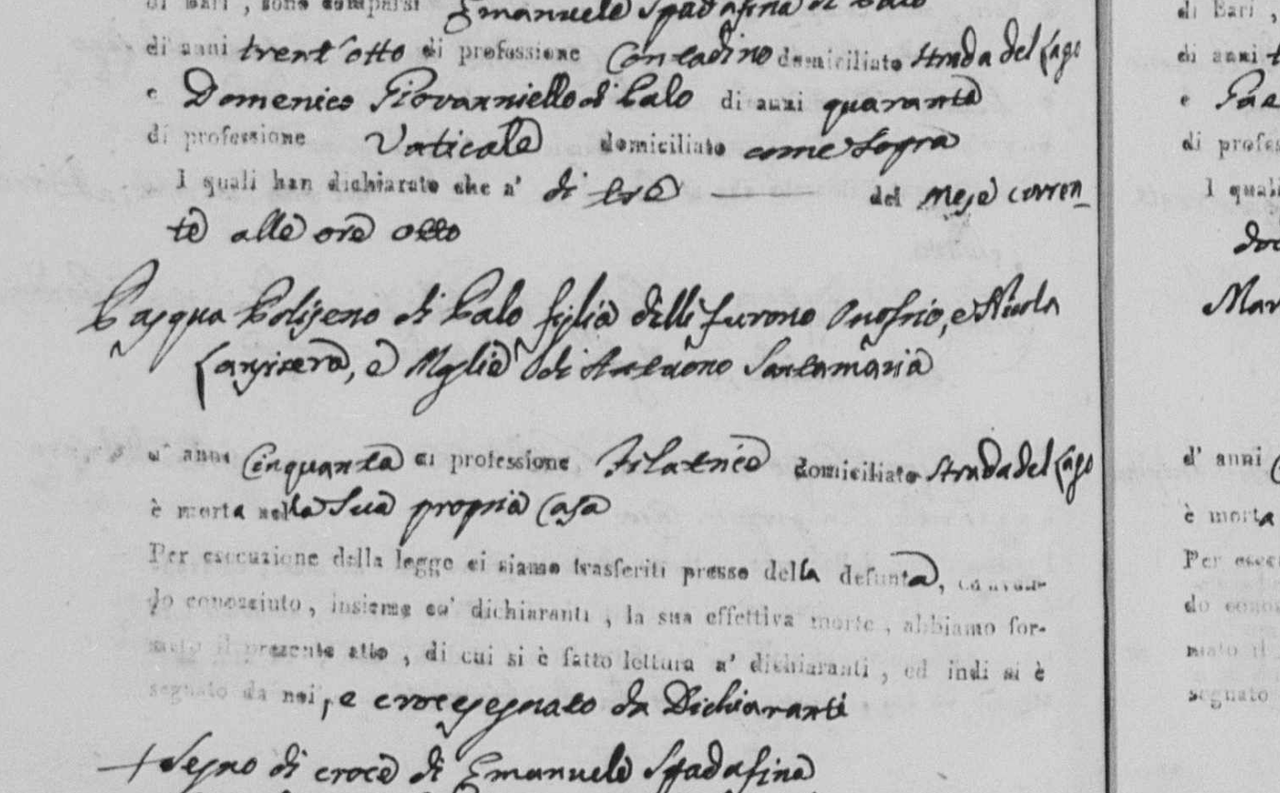 di Bari, sono comparsi Emanuele Spadafina di Palo
di anni trent'otto di professione Contadino domiciliato strada del Lago
e Domenico Giovanniello di Palo di anni quaranta
di professione Vaticale domiciliato come sopra
I quali han dichiarato che a' di tre del mese corren_
te alle ore otto
Pasqua Poliseno di Palo figlia delli furono Onofrio, e Nicola
e Moglie di Antuono Santamaria
d' anni Cinquanta di professione Filatrice domiciliata strada del Lago
è morta nella sua propria Casa
Per esecuzione della legge ci siamo trasferiti presso della defunta, ed aven-
do conosciuto, insieme co' dichiaranti, la sua effettiva morte, abbiamo for-
mato il presente atto, di cui si è fatto lettura a' dichiaranti, ed indi si è
segnato da noi, e crocesegnato da Dichiaranti
+ Segno di croce di Emanuele Spadafina
di Bari,
di anni t
e
di profes
I quali
Mar
d' anni
è morta
Per esec
do cono
mato il
segnato